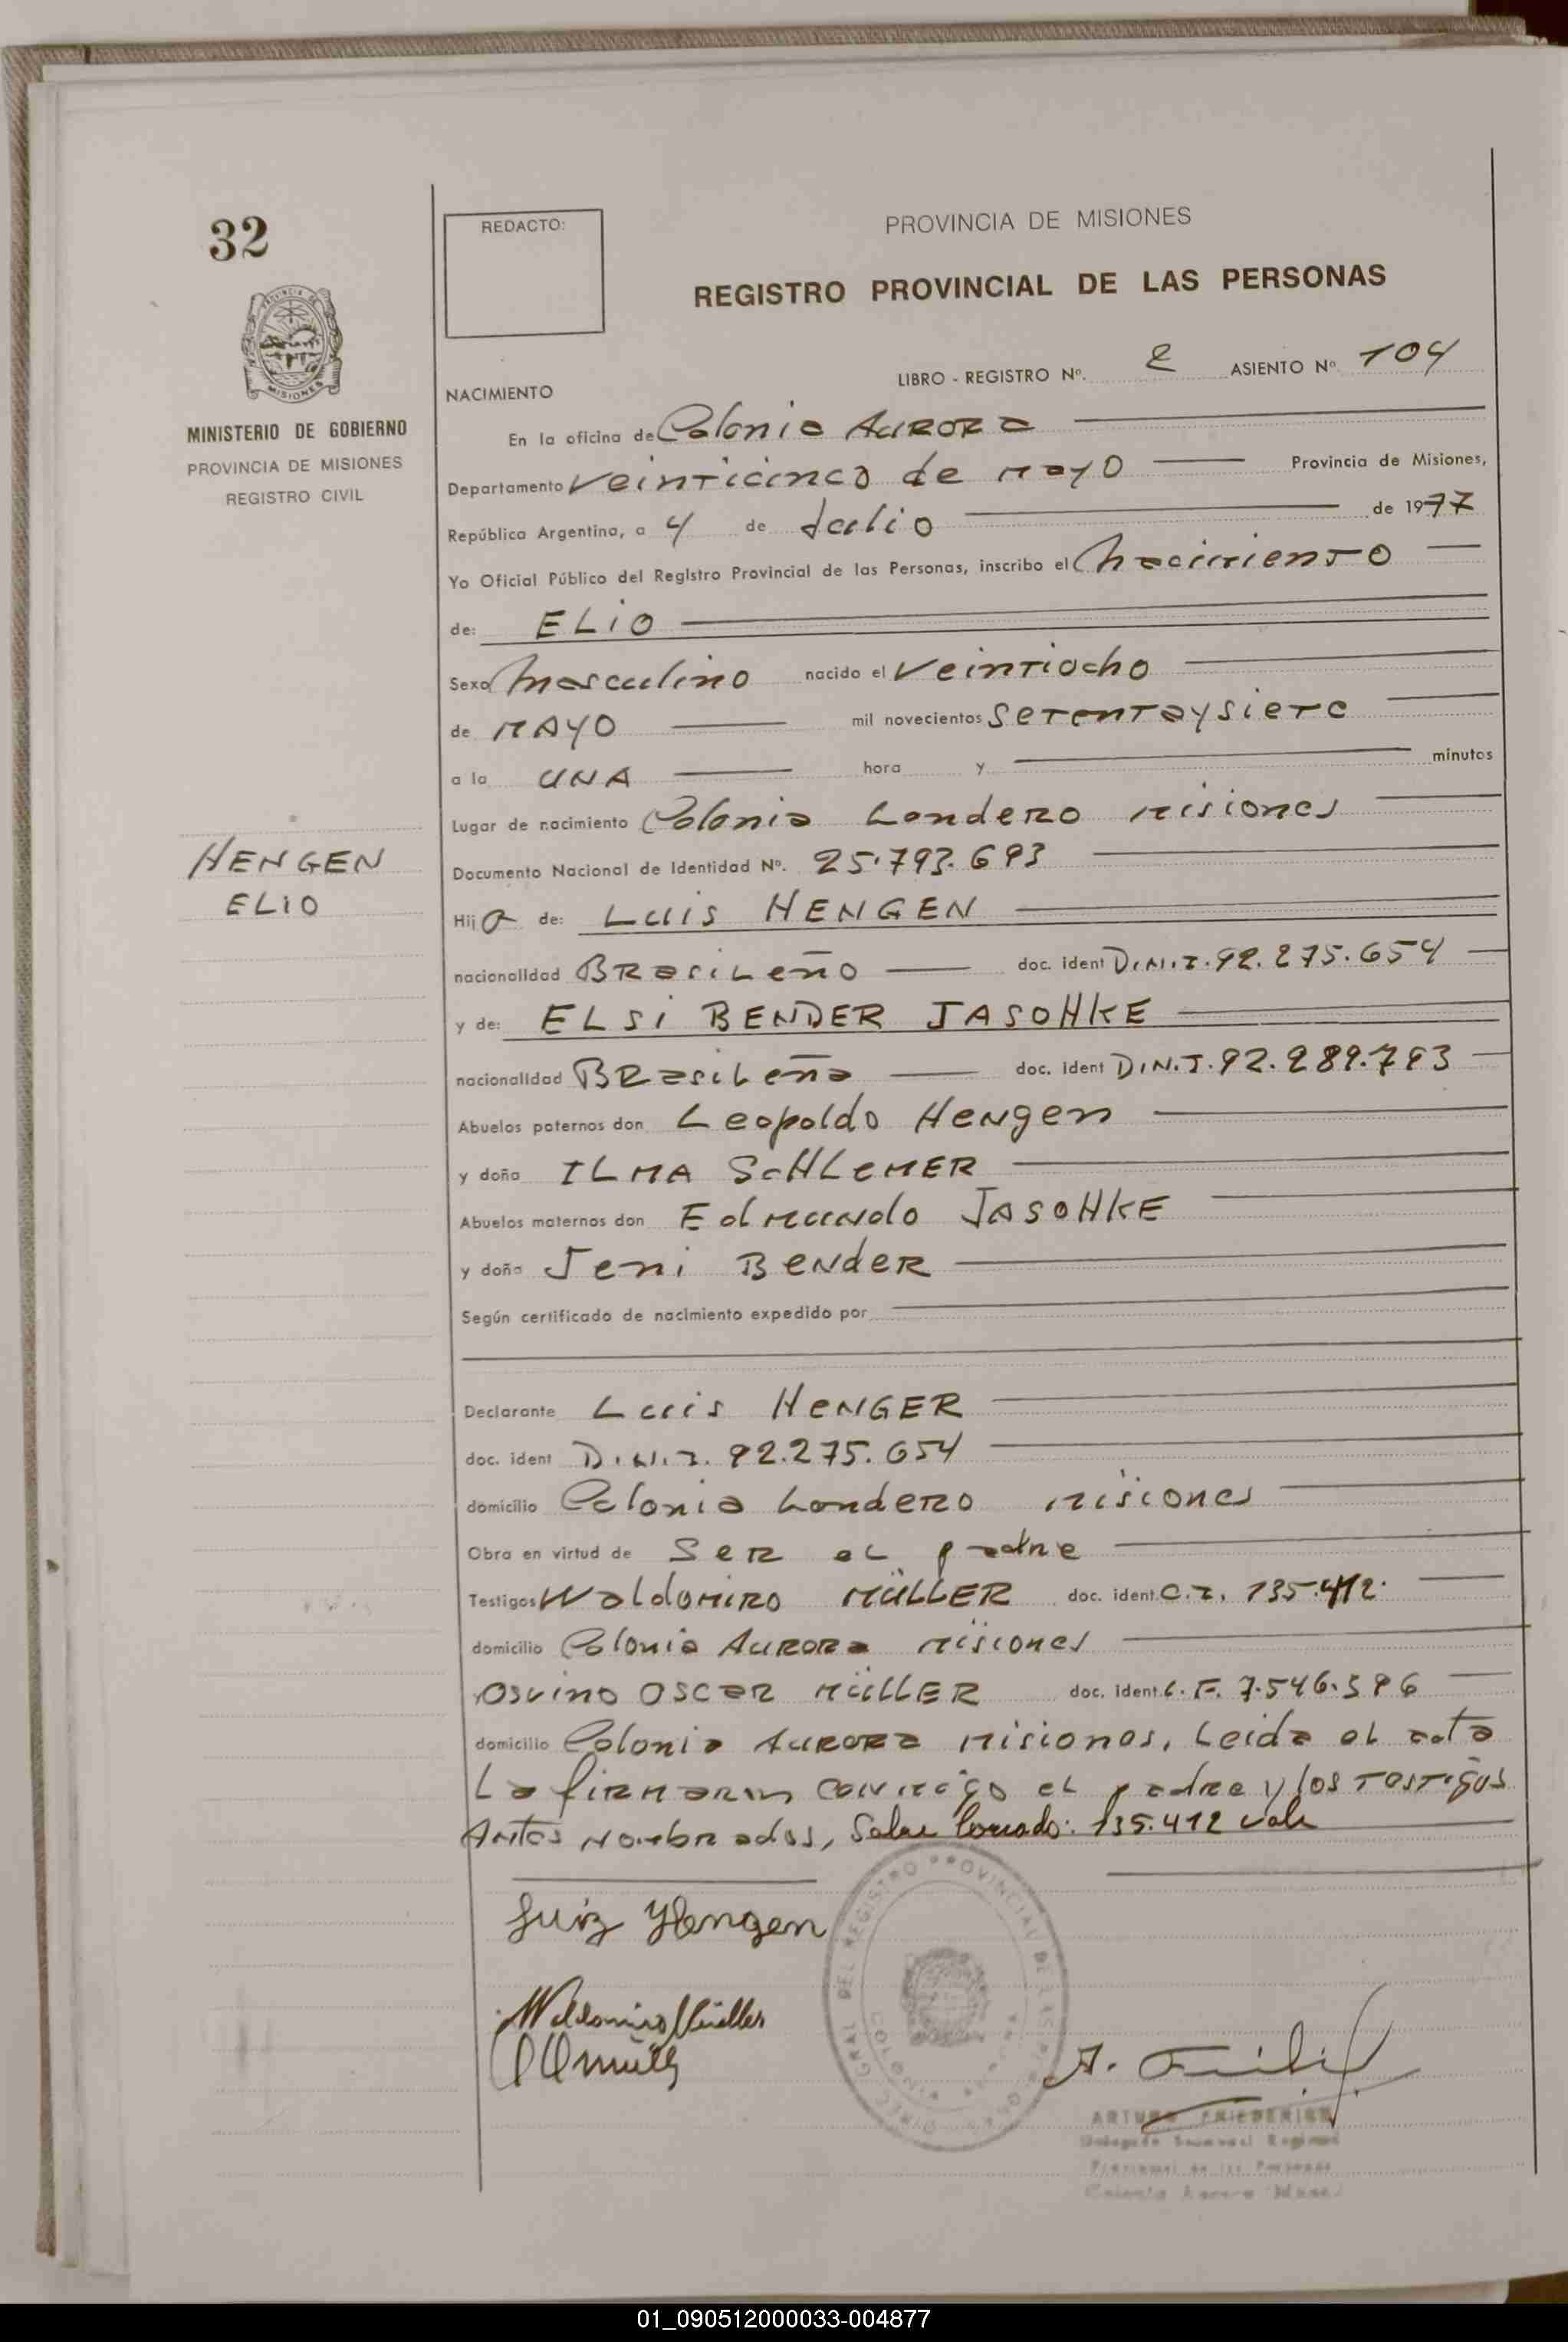 32
REDACTO:
PROVINCIA DE MISIONES
REGISTRO PROVINCIAL DE LAS PERSONAS
MISIONES
MINISTERIO DE GOBIERNO
PROVINCIA DE MISIONES
REGISTRO CIVIL
LIBRO - REGISTRO Nº. 2 ASIENTO Nº 104
NACIMIENTO
En la oficina de Colonia AURORA
Departamento Veinticinco de mayo Provincia de Misiones,
República Argentina, a 4 de Julio de 1977
Yo Oficial Público del Registro Provincial de las Personas, inscribo el Nacimiento
de: ELIO
Sexo Masculino nacido el Veintiocho
de MAYO mil novecientos Setentaysiete
a la UNA hora y minutos
Lugar de nacimiento Colonia Londero Misiones
HENGEN
ELIO
Documento Nacional de Identidad Nº. 25.793.693
Hijo de: LUIS HENGEN
nacionalidad BRasiLeño doc. ident D.N.I. 92.275.654
y de: ELSI BENDER JASOHKE
nacionalidad BRasiLeña doc. ident D.N.I. 92.289.793
Abuelos paternos don Leopoldo Hengen
y doña ILMA SCHLEMER
Abuelos maternos don Edmundo JASOHKE
y doña Jeni BENdeR
Según certificado de nacimiento expedido por
Declarante Luis HENGER
doc. ident D.N.I. 92.275.654
domicilio Colonia Londero Misiones
Obra en virtud de Ser el padre
Testigos Waldomiro MÜLLER doc. ident. C.I. 135.412.
domicilio Colonia AURORA Misiones
y Osvino OSCAR MÜLLER doc. ident. L.E. 7.546.596
domicilio Colonia AURORA Misiones, Leida el acta
La firmaron conmigo el padre y los testigos
Antes Nombrados, Sobre borrado: 135.412 vale
Luiz Hengen
Waldomiro Müller
DIREC. GRAL. DEL REGISTRO PROVINCIAL DE LAS PERSONAS
ARTURO FRIEDERICH
Colonia Aurora
01_090512000033-004877